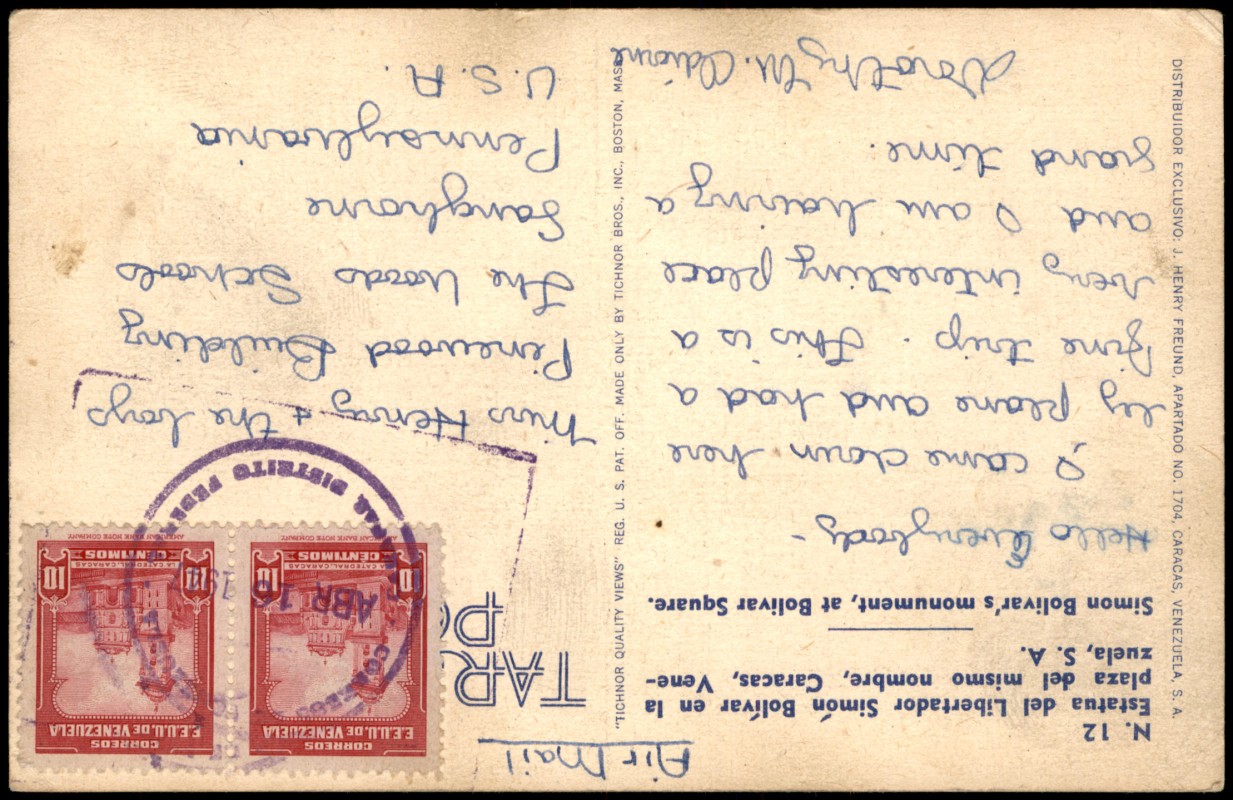 N. 12
Estatua del Libertador Simón Bolívar en la
plaza del mismo nombre, Caracas, Vene-
zuela, S. A.
Simon Bolivar's monument, at Bolivar Square.
Hello Everybody -
I came down here
by plane and had a
fine trip. This is a
very interesting place
and I am having a
grand time.
Dorothy M.
DISTRIBUIDOR EXCLUSIVO: J. HENRY FREUND, APARTADO NO. 1704, CARACAS, VENEZUELA, S. A.
"TICHNOR QUALITY VIEWS" REG. U. S. PAT. OFF. MADE ONLY BY TICHNOR BROS., INC., BOSTON, MASS.
Air Mail
TAR
PO
CORREOS
E.E.U.U. DE VENEZUELA
LA CATEDRAL-CARACAS
10 CENTIMOS 10
AMERICAN BANK NOTE COMPANY
CORREOS
E.E.U.U. DE VENEZUELA
LA CATEDRAL-CARACAS
10 CENTIMOS 10
AMERICAN BANK NOTE COMPANY
CORREOS
ABR 16
DISTRITO FEDERAL
Miss Henry & the boys
Pinewood Building
The Woods Schools
Langhorne
Pennsylvania
U. S. A.